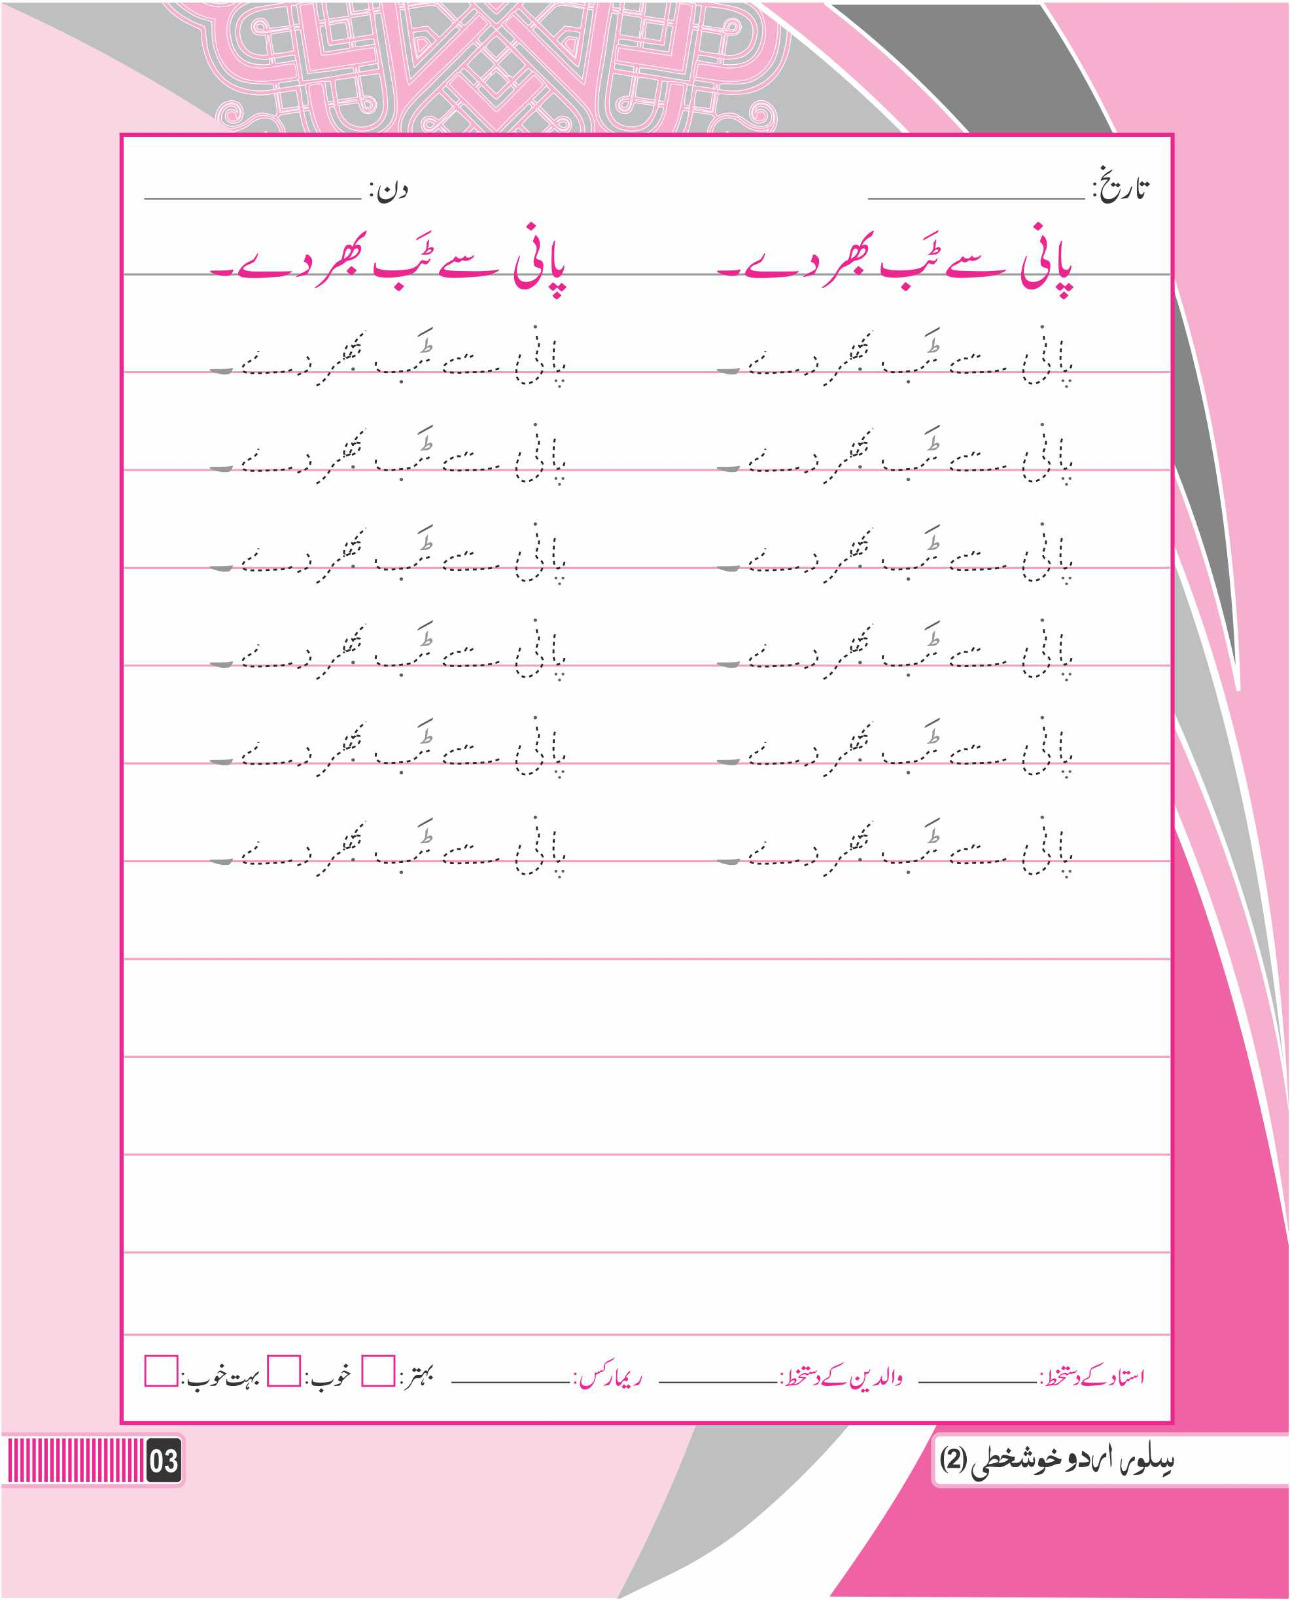 تاریخ: ____________ دن: ____________
پانی سے ٹَب بھر دے۔ پانی سے ٹَب بھر دے۔
پانی سے ٹَب بھر دے۔ پانی سے ٹَب بھر دے۔
پانی سے ٹَب بھر دے۔ پانی سے ٹَب بھر دے۔
پانی سے ٹَب بھر دے۔ پانی سے ٹَب بھر دے۔
پانی سے ٹَب بھر دے۔ پانی سے ٹَب بھر دے۔
پانی سے ٹَب بھر دے۔ پانی سے ٹَب بھر دے۔
پانی سے ٹَب بھر دے۔ پانی سے ٹَب بھر دے۔
استاد کے دستخط: ________ والدین کے دستخط: ________ ریمارکس: ________ بہتر: خوب: بہت خوب:
سِلور اردو خوشخطی (2)
03